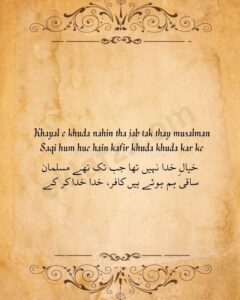 Khayal e khuda nahin tha jab tak thay musalman
Saqi hum hue hain kafir khuda khuda kar ke
خیالِ خدا نہیں تھا جب تک تھے مسلمان
ساقی ہم ہوئے ہیں کافر، خدا خدا کر کے